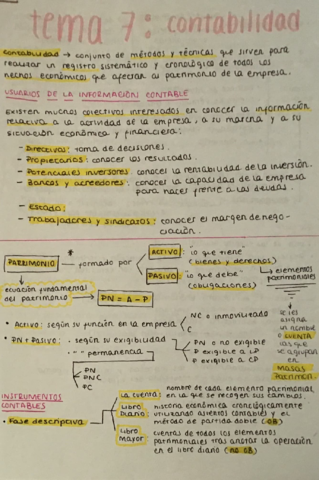 tema 7: contabilidad
contabilidad → conjunto de métodos y técnicas que sirven para
realizar un registro sistemático y cronológico de todos los
hechos económicos que afectan al patrimonio de la empresa.
USUARIOS DE LA INFORMACIÓN CONTABLE
EXISTEN muchos colectivos interesados en conocer la información
relativa a la actividad de la empresa, a su marcha y a su
situación económica y financiera:
- Directivos: toma de decisiones.
- Propietarios: conocer los resultados.
- Potenciales inversores: conocer la rentabilidad de la inversión.
- Bancos y acreedores: conocer la capacidad de la empresa
para hacer frente a las deudas.
- Estado:
- Trabajadores y sindicatos: conocer el margen de nego-
ciación.
PATRIMONIO * formado por
ACTIVO: "lo que tiene"
(bienes y derechos)
PASIVO: "lo que debe"
(obligaciones)
elementos
patrimoniales
se les
asigna
un nombre
o CUENTA
las que
se agrupan
en
MASAS
PATRIMON.
ecuación fundamental
del patrimonio
PN = A - P
• ACTIVO: según su función en la empresa
NC o inmovilizado
C
• PN + PASIVO: · según su exigibilidad
PN o no exigible
P exigible a LP
P exigible a CP
permanencia
PN
PNC
PC
INSTRUMENTOS
CONTABLES
• Fase descriptiva
LA cuenta: nombre de cada elemento patrimonial
en la que se recogen sus cambios.
LIBRO
Diario: historia económica cronológicamente
utilizando asientos contables y el
método de partida doble (OB)
LIBRO
Mayor: cuentas de todos los elementos
patrimoniales tras anotar la operación
en el libro diario (no OB)